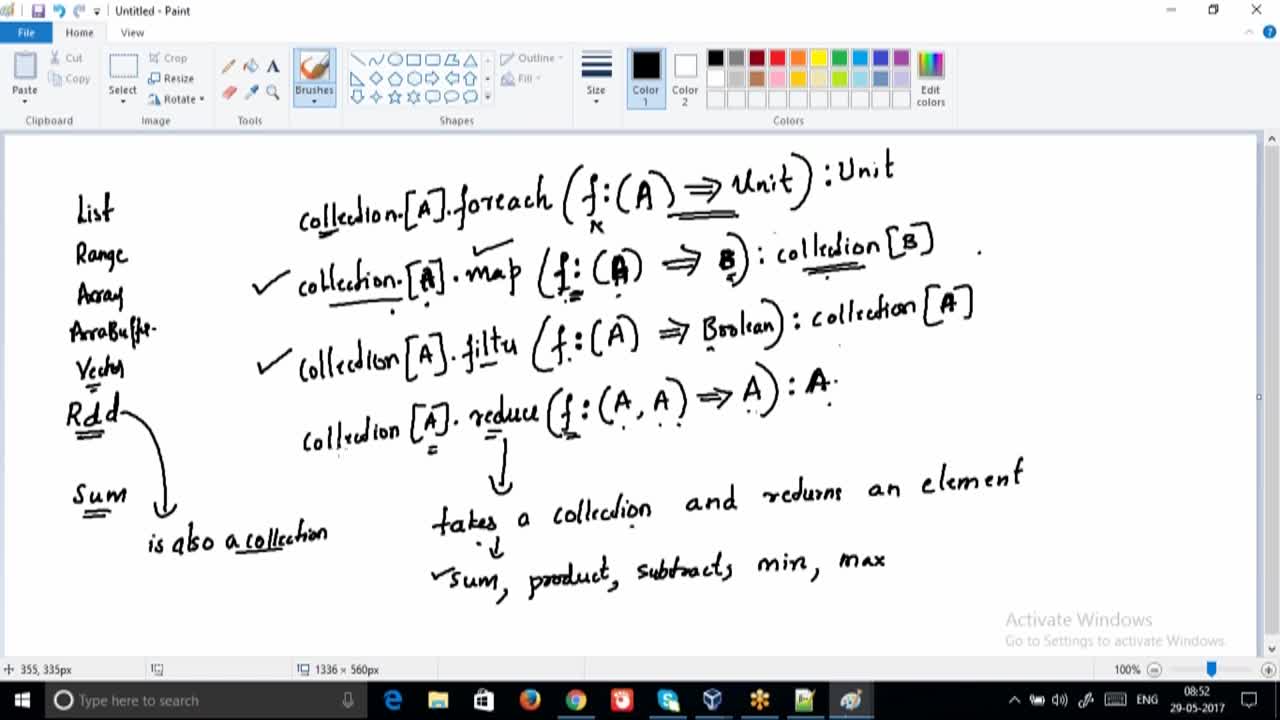 Untitled - Paint
File Home View
Paste Cut Copy Select Crop Resize Rotate Brushes Outline Fill Size Color 1 Color 2 Edit colors
Clipboard Image Tools Shapes Colors
List
Range
Array
ArraBuffe.
Vector
Rdd
Sum
is also a collection
collection.[A].foreach (f:(A) => Unit) : Unit
collection.[A].map (f:(A) => B) : collection[B]
collection[A].filter (f:(A) => Boolean) : collection[A]
collection [A]. reduce (f:(A, A) => A) : A.
takes a collection and returns an element
sum, product, subtract, min, max
Activate Windows
Go to Settings to activate Windows.
355, 335px 1336 × 560px 100%
Type here to search ENG 08:52
29-05-2017